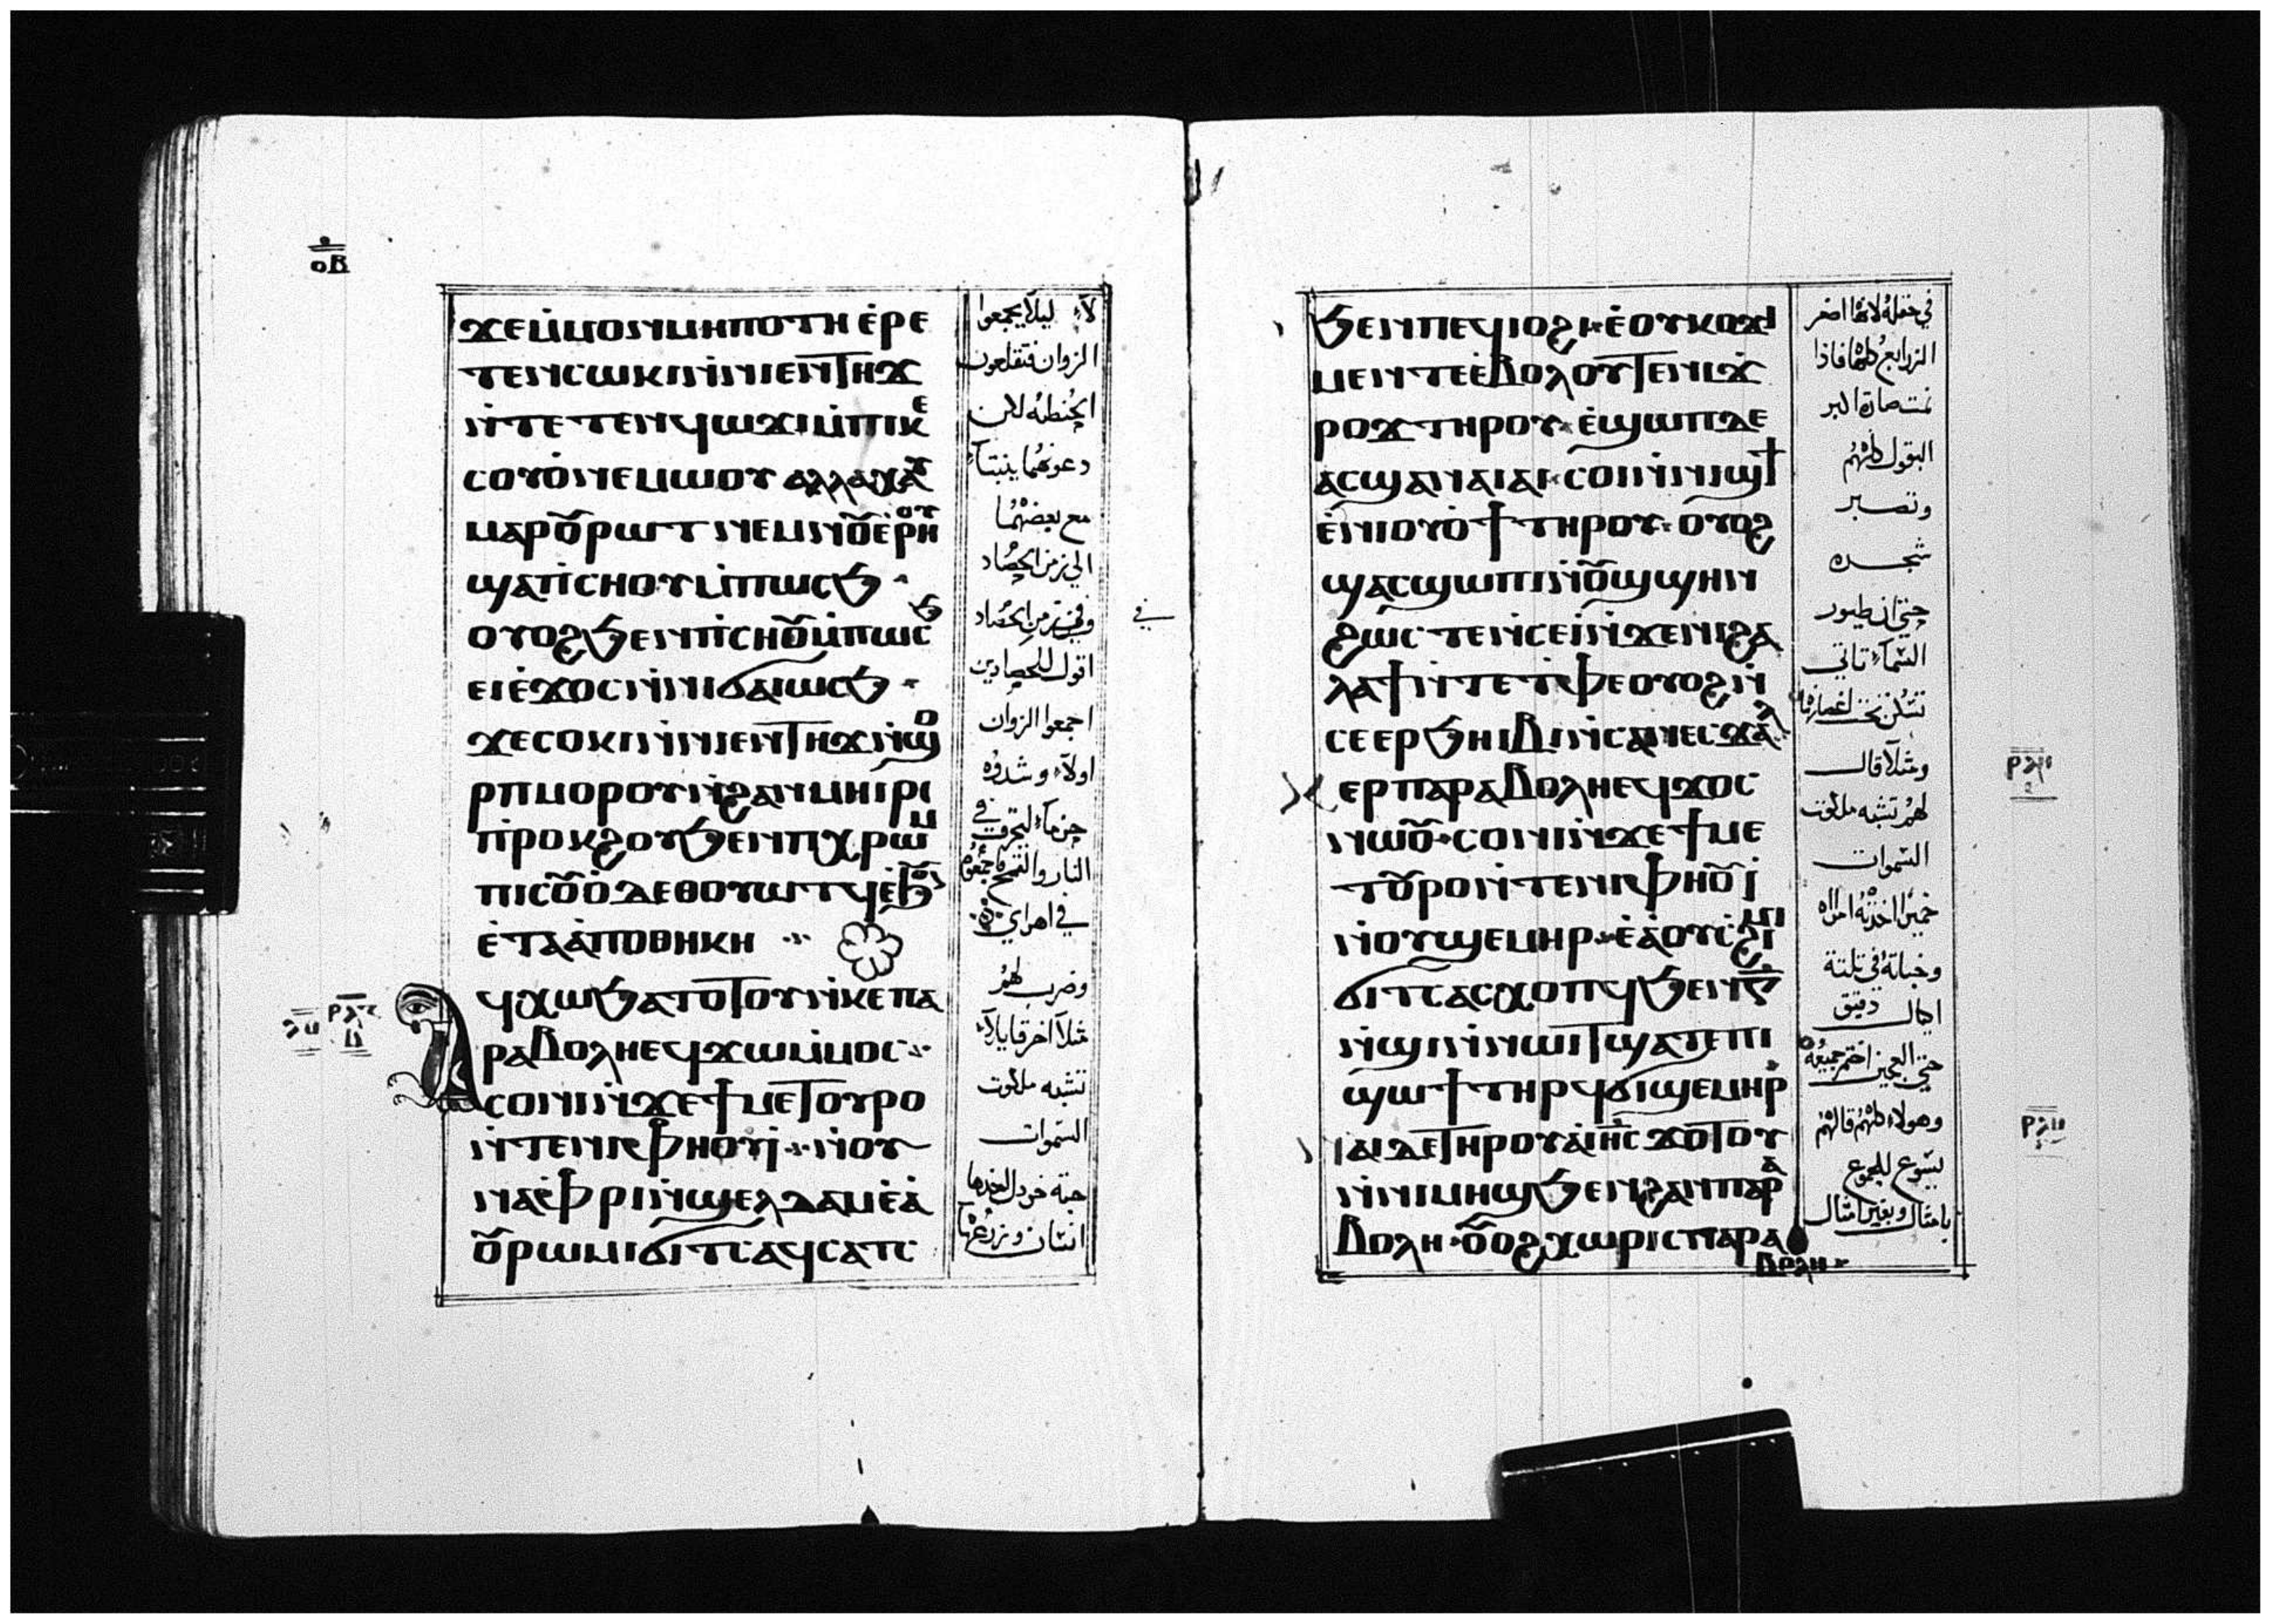 ⲟⲃ
ϫⲉⲙ̇ⲙⲟⲛⲙⲏⲡⲟⲧⲏ ⲉ̇ⲣⲉ
ⲧⲉⲛⲥⲱⲕⲓⲛ̇ⲛⲓⲉⲛϯⲏϫ
ⲛ̇ⲧⲉⲧⲉⲛϥⲱϫⲓⲙ̇ⲡⲓⲕⲉ
ⲥⲟⲩⲟ̇ⲛⲉⲙⲱⲟⲩ ⲁⲗⲗⲁⲭⲁⲩ
ⲙⲁⲣⲟⲩⲣⲱⲧ ⲛⲉⲙⲛⲟⲩⲉ̇ⲣⲏⲟⲩ
ϣⲁⲡⲓⲥⲏⲟⲩⲙ̇ⲡⲱⲥϧ
ⲟⲩⲟϩϧⲉⲛⲡⲓⲥⲏⲟⲩⲙ̇ⲡⲱⲥϧ
ⲉⲓⲉ̇ϫⲟⲥⲛ̇ⲛⲓϭⲁⲓⲱⲥϧ
ϫⲉⲥⲟⲕⲓⲛ̇ⲛⲓⲉⲛϯⲏϫⲛ̇ϣⲟ
ⲣⲡⲙⲟⲣⲟⲩⲛ̇ϩⲁⲛⲙⲏⲓⲣⲓ
ⲡ̇ⲣⲟⲕϩⲟⲩϧⲉⲛⲡⲓⲭⲣⲱⲙ
ⲡⲓⲥⲟⲩⲟ̇ⲇⲉⲑⲟⲩⲱⲧϥⲉ̇ϧⲟⲩⲛ
ⲉ̇ⲧⲁⲁ̇ⲡⲟⲑⲏⲕⲏ
ⲁϥⲭⲱϧⲁⲧⲟⲧⲟⲩⲛ̇ⲕⲉⲡⲁ
ⲣⲁⲃⲟⲗⲏⲉϥϫⲱⲙ̇ⲙⲟⲥ
ⲥⲟⲛⲓⲛ̇ϫⲉϯⲙⲉⲧⲟⲩⲣⲟ
ⲛ̇ⲧⲉⲛⲓⲫⲏⲟⲩⲓ̇ ⲛ̇ⲟⲩ
ⲛⲁⲫⲣⲓⲛ̇ϣⲉⲗⲧⲁⲙⲉ̇ⲁ̇
ⲟⲩⲣⲱⲙⲓϭⲓⲧⲥⲁϥⲥⲁⲧⲥ
لا ليلا يجمعوا
الزوان فتقلعون
الحنطه لكن
دعوهما ينبتا
مع بعضهما
الي زمن الحصاد
وفي زمن الحصاد
اقول للحصادين
اجمعوا الزوان
اولا وشدوه
حزما ليحرق في
النار والقمح اجمعوه
في اهراي
وضرب لهم
مثلا اخر قايلا
تشبه ملكوت
السموات
حبة خردل اخدها
انسان وزرعها
ϧⲉⲛⲡⲉϥⲓⲟϩⲓ ⲉ̇ⲟⲩⲕⲟⲩϫⲓ
ⲙⲉⲛⲧⲉⲉ̇ⲃⲟⲗⲟⲩⲧⲉⲛⲓϫ
ⲣⲟϫ ⲧⲏⲣⲟⲩ ⲉ̇ϣⲱⲡⲇⲉ
ⲁⲥϣⲁⲛⲁⲓⲁⲓ ⲥⲟⲛⲓⲛ̇ⲛⲓϣϯ
ⲉ̇ⲛⲓⲟⲩⲟ̇ϯⲧⲏⲣⲟⲩ ⲟⲩⲟϩ
ϣⲁⲥϣⲱⲡⲓⲛ̇ⲟⲩϣϣⲏⲛ
ϩⲱⲥ ⲧⲉⲛⲥⲉⲓ̇ⲛ̇ϫⲉⲛⲓϩⲁ
ⲗⲁϯⲛ̇ⲧⲉⲧⲫⲉⲟⲩⲟϩⲛ̇
ⲥⲉⲉⲣϧⲏⲓⲃⲓⲛ̇ⲥⲁⲛⲉⲥϫⲁⲗ
ⲉⲣⲡⲁⲣⲁⲃⲟⲗⲏⲉϥϫⲟⲥ
ⲛⲱⲟⲩ ⲥⲟⲛⲓⲛ̇ϫⲉϯⲙⲉ
ⲧⲟⲩⲣⲟⲛⲧⲉⲛⲓⲫⲏⲟⲩⲓ̇
ⲛ̇ⲟⲩϣⲉⲙⲏⲣ ⲉ̇ⲁ̇ⲟⲩⲥ̇ϩⲓⲙⲓ
ϭⲓⲧⲥⲁⲥⲭⲟⲡϥϧⲉⲛⲅ̅
ⲛ̇ϣⲓⲛ̇ⲛⲱⲓⲧϣⲁⲧⲉⲡⲓ
ϣⲱϯⲧⲏⲣϥϭⲓϣⲉⲙⲏⲣ
ⲛⲁⲓⲇⲉⲧⲏⲣⲟⲩⲁ̇ⲓⲏⲥ ϫⲟⲧⲟⲩ
ⲛ̇ⲛⲓⲙⲏϣϧⲉⲛϩⲁⲛⲡⲁⲣⲁ
ⲃⲟⲗⲏ ⲟⲩⲟϩⲭⲱⲣⲓⲥⲡⲁⲣⲁ
ⲃⲟⲗⲏ
في حقله لانها اصغر
الزراريع كلها فاذا
نمت صارة اكبر
البقول كلهم
وتصير
شجره
حتي ان طيور
السماء تاتي
تسكن تحت اغصانها
ومثلا قال
لهم تشبه ملكوت
السموات
خميرا اخذته امراه
وخباته في تلتة
اكيال دقيق
حتي العجين اختمر جميعه
وهولاء كلهم قالهم
يسوع للجموع
بامثال وبغير امثال